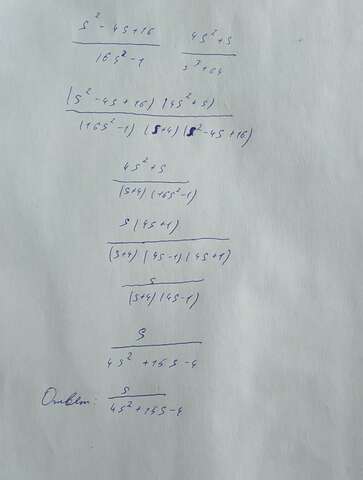 (s² - 4s + 16)/(16s² - 1) (4s² + s)/(s³ + 64)
((s² - 4s + 16)(4s² + s))/((16s² - 1)(s+4)(s² - 4s + 16))
(4s² + s)/((s+4)(16s² - 1))
(s(4s+1))/((s+4)(4s-1)(4s+1))
s/((s+4)(4s-1))
s/(4s² + 15s - 4)
Ответ: s/(4s² + 15s - 4)